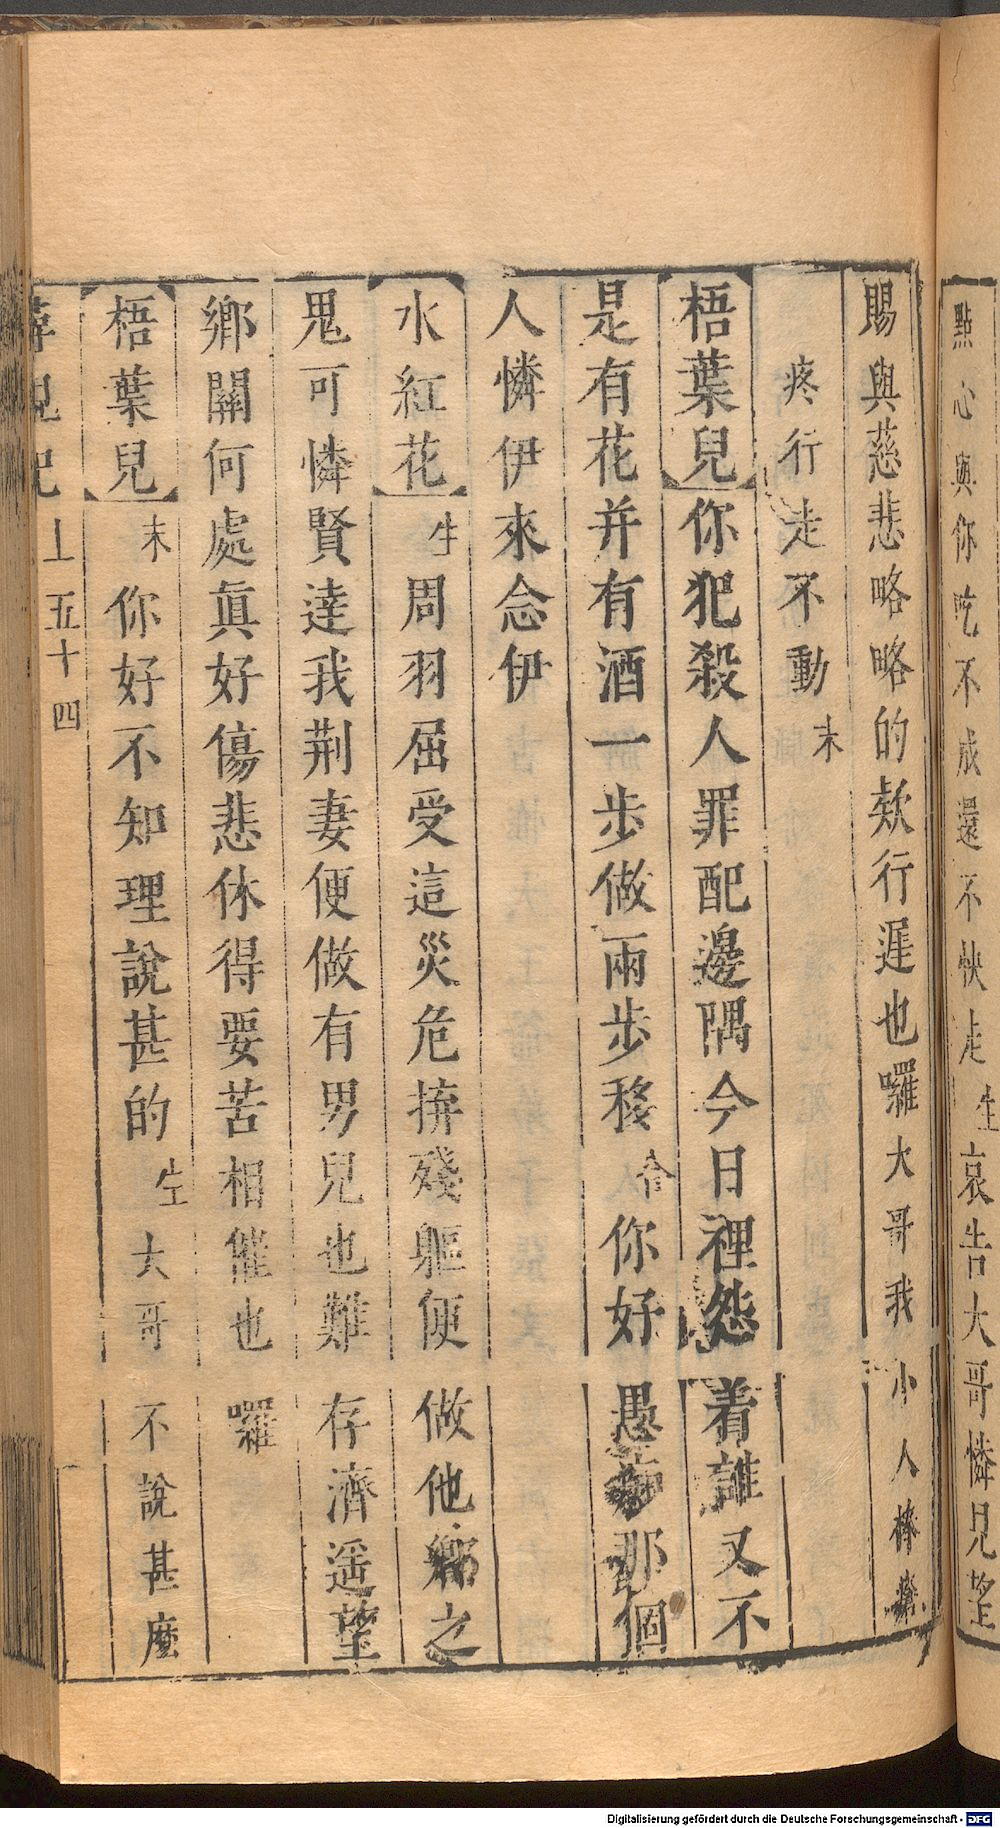 點心與你吃不成還不快走生哀告大哥憐見望
賜與慈悲略略的欸行遲也囉大哥我小人棒瘡
疼行走不動末
梧葉兒你犯殺人罪配邊隅今日裡怨着誰又不
是有花并有酒一步做兩步移合你好愚那個
人憐伊來念伊
水紅花生周羽屈受這災危拚殘軀便做他鄉之
鬼可憐賢達我荆妻便做有男兒也難存濟遥望
鄉關何處眞好傷悲休得要苦相催也囉
梧葉兒末你好不知理說甚的生大哥不說甚麼
上五十四
Digitalisierung gefördert durch die Deutsche Forschungsgemeinschaft - DFG